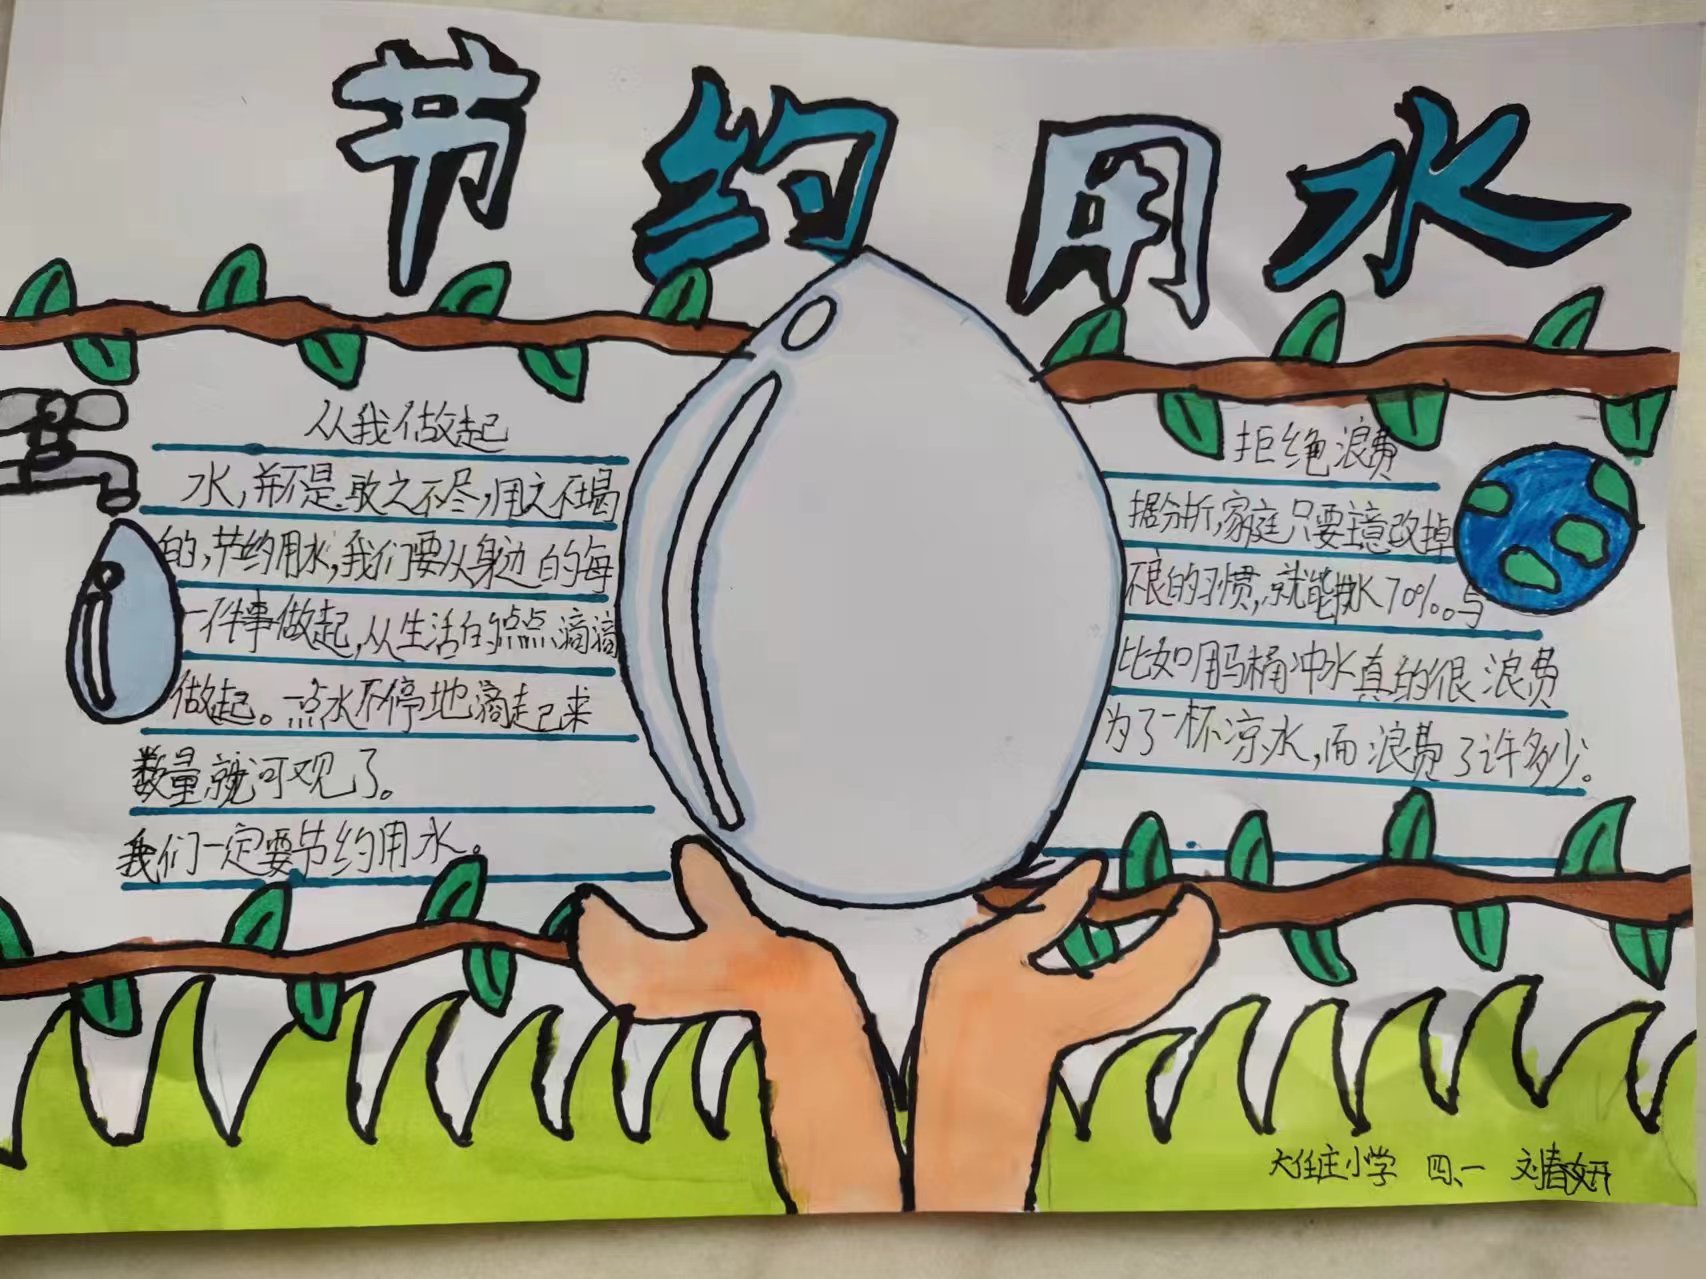 节约用水
从我做起
水,并不是取之不尽,用之不竭
的,节约用水,我们要从身边的每
一件事做起,从生活的点点滴滴
做起。一点水不停地滴起来
数量就可观了。
我们一定要节约用水。
拒绝浪费
据分析,家庭只要注意改掉
不良的习惯,就能节水70%。与
比如用马桶冲水真的很浪费
为了一杯凉水,而浪费了许多少。
大任庄小学 四、一 刘春妍